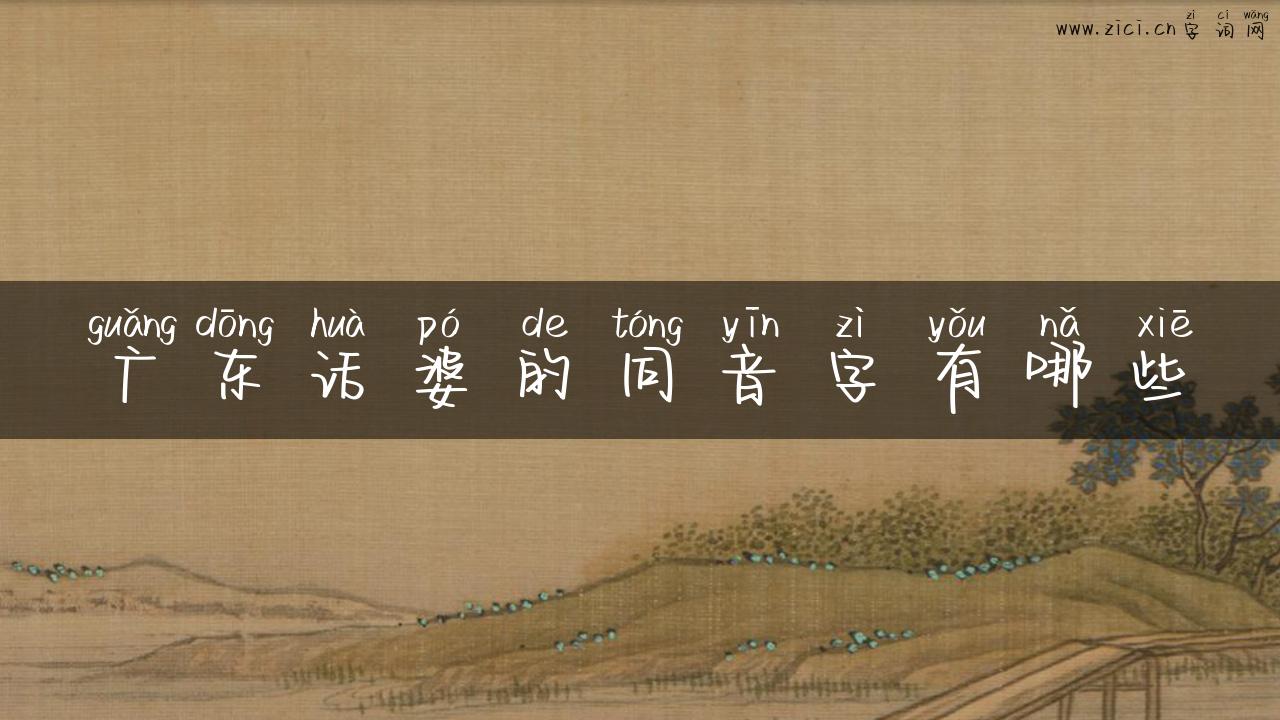 zì cí wǎng
www.zici.cn字词网
guǎng dōng huà pó de tóng yīn zì yǒu nǎ xiē
广东话婆的同音字有哪些